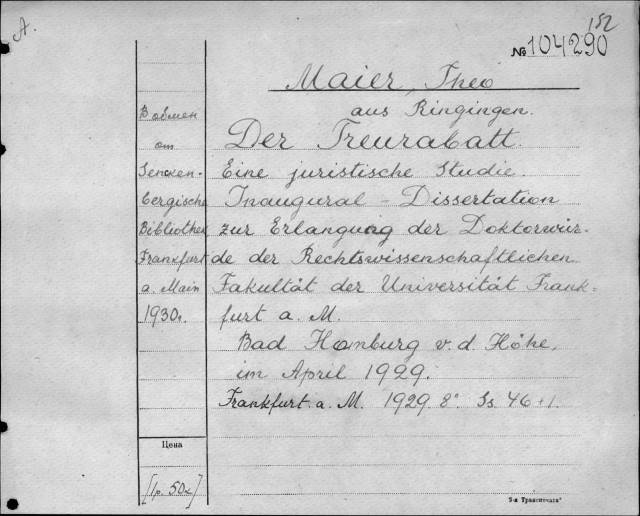 A.
152
№ 104290
Maier, Theo
aus Ringingen.
Der Treurabatt.
Eine juristische Studie.
Inaugural - Dissertation
zur Erlangung der Doktorwür-
de der Rechtswissenschaftlichen
Fakultät der Universität Frank-
furt a. M.
Bad Homburg v. d. Höhe,
im April 1929.
Frankfurt a. M. 1929. 8°. Ss. 46+1.
В обмен
от
Sencken-
bergische
Bibliothek
Frankfurt
a. Main
1930г.
Цена
[1р. 50к]
2-я Транспечать